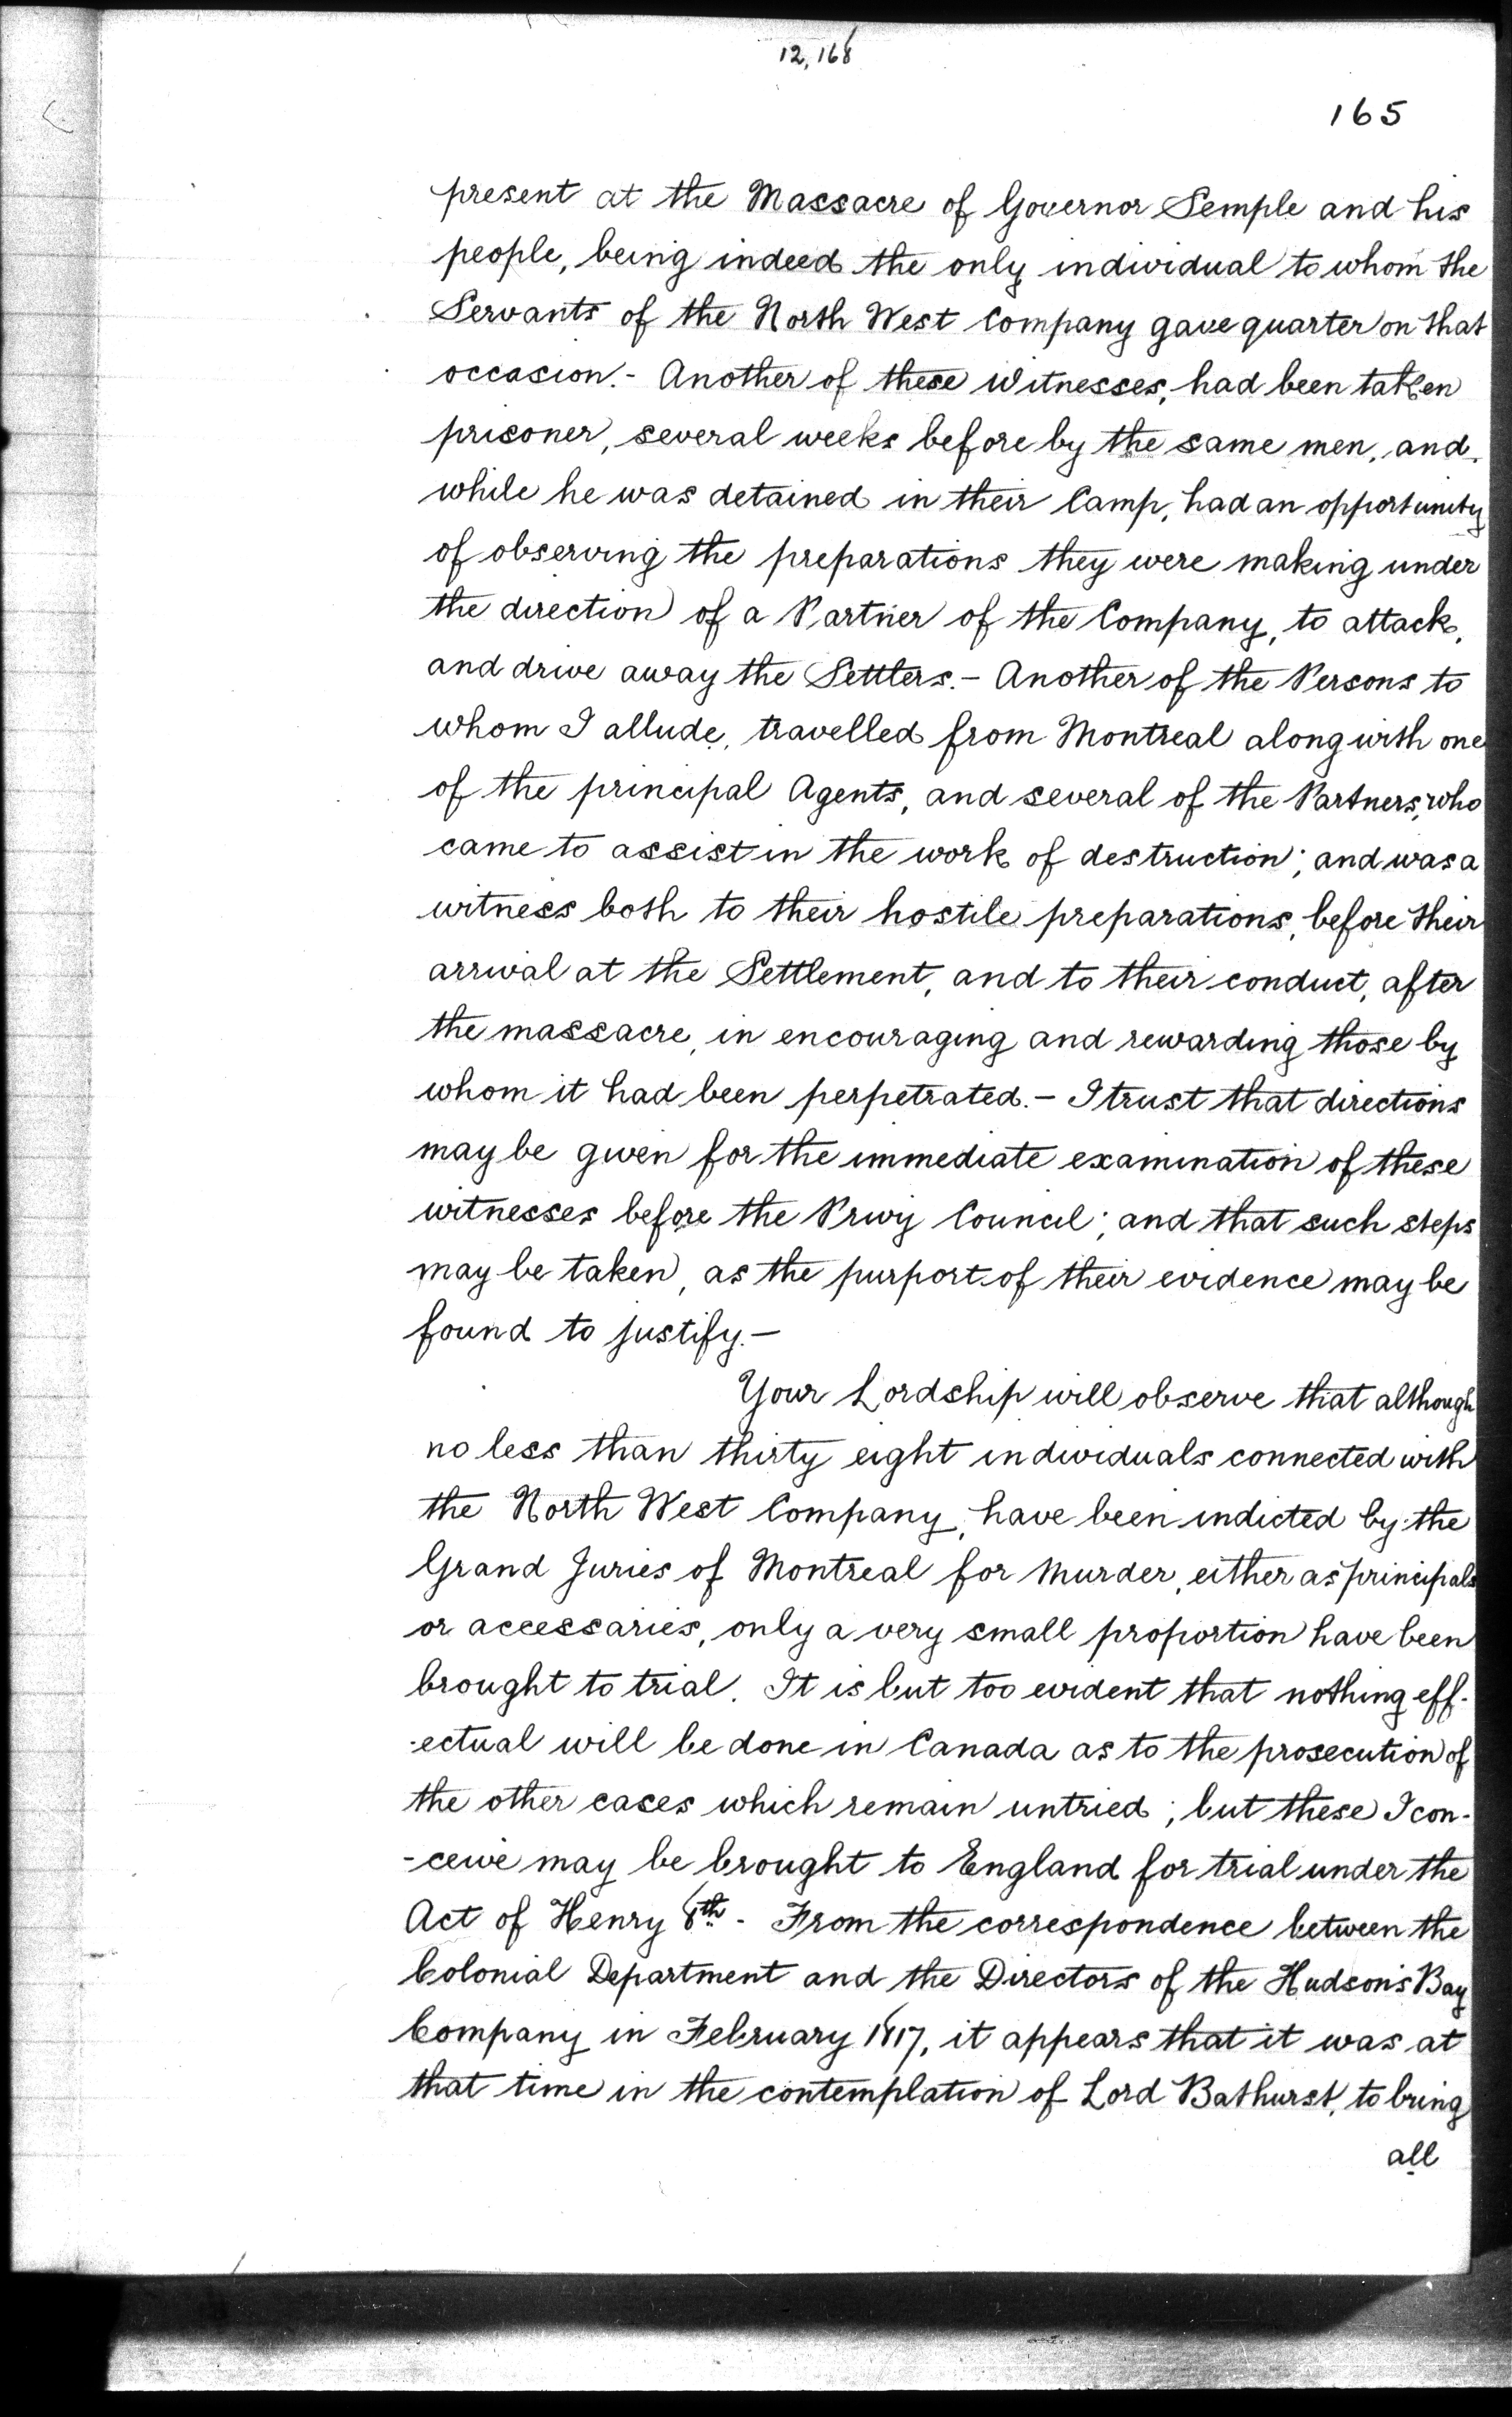 12,168
165
present at the Massacre of Governor Semple and his
people, being indeed the only individual to whom the
Servants of the North West Company gave quarter on that
occasion.- Another of these Witnesses, had been taken
prisoner, several weeks before by the same men, and,
while he was detained in their Camp, had an opportunity
of observing the preparations they were making under
the direction of a Partner of the Company, to attack,
and drive away the Settlers.- Another of the Persons to
whom I allude, travelled from Montreal along with one
of the principal Agents, and several of the Partners, who
came to assist in the work of destruction; and was a
witness both to their hostile preparations, before their
arrival at the Settlement, and to their conduct, after
the massacre, in encouraging and rewarding those by
whom it had been perpetrated.- I trust that directions
may be given for the immediate examination of these
witnesses before the Privy Council; and that such steps
may be taken, as the purport of their evidence may be
found to justify.-
Your Lordship will observe that although
no less than thirty eight individuals connected with
the North West Company, have been indicted by the
Grand Juries of Montreal for Murder, either as principals
or accessaries, only a very small proportion have been
brought to trial. It is but too evident that nothing eff-
-ectual will be done in Canada as to the prosecution of
the other cases which remain untried; but these I con-
-ceive may be brought to England for trial under the
Act of Henry 8th - From the correspondence between the
Colonial Department and the Directors of the Hudson's Bay
Company in February 1817, it appears that it was at
that time in the contemplation of Lord Bathurst, to bring
all